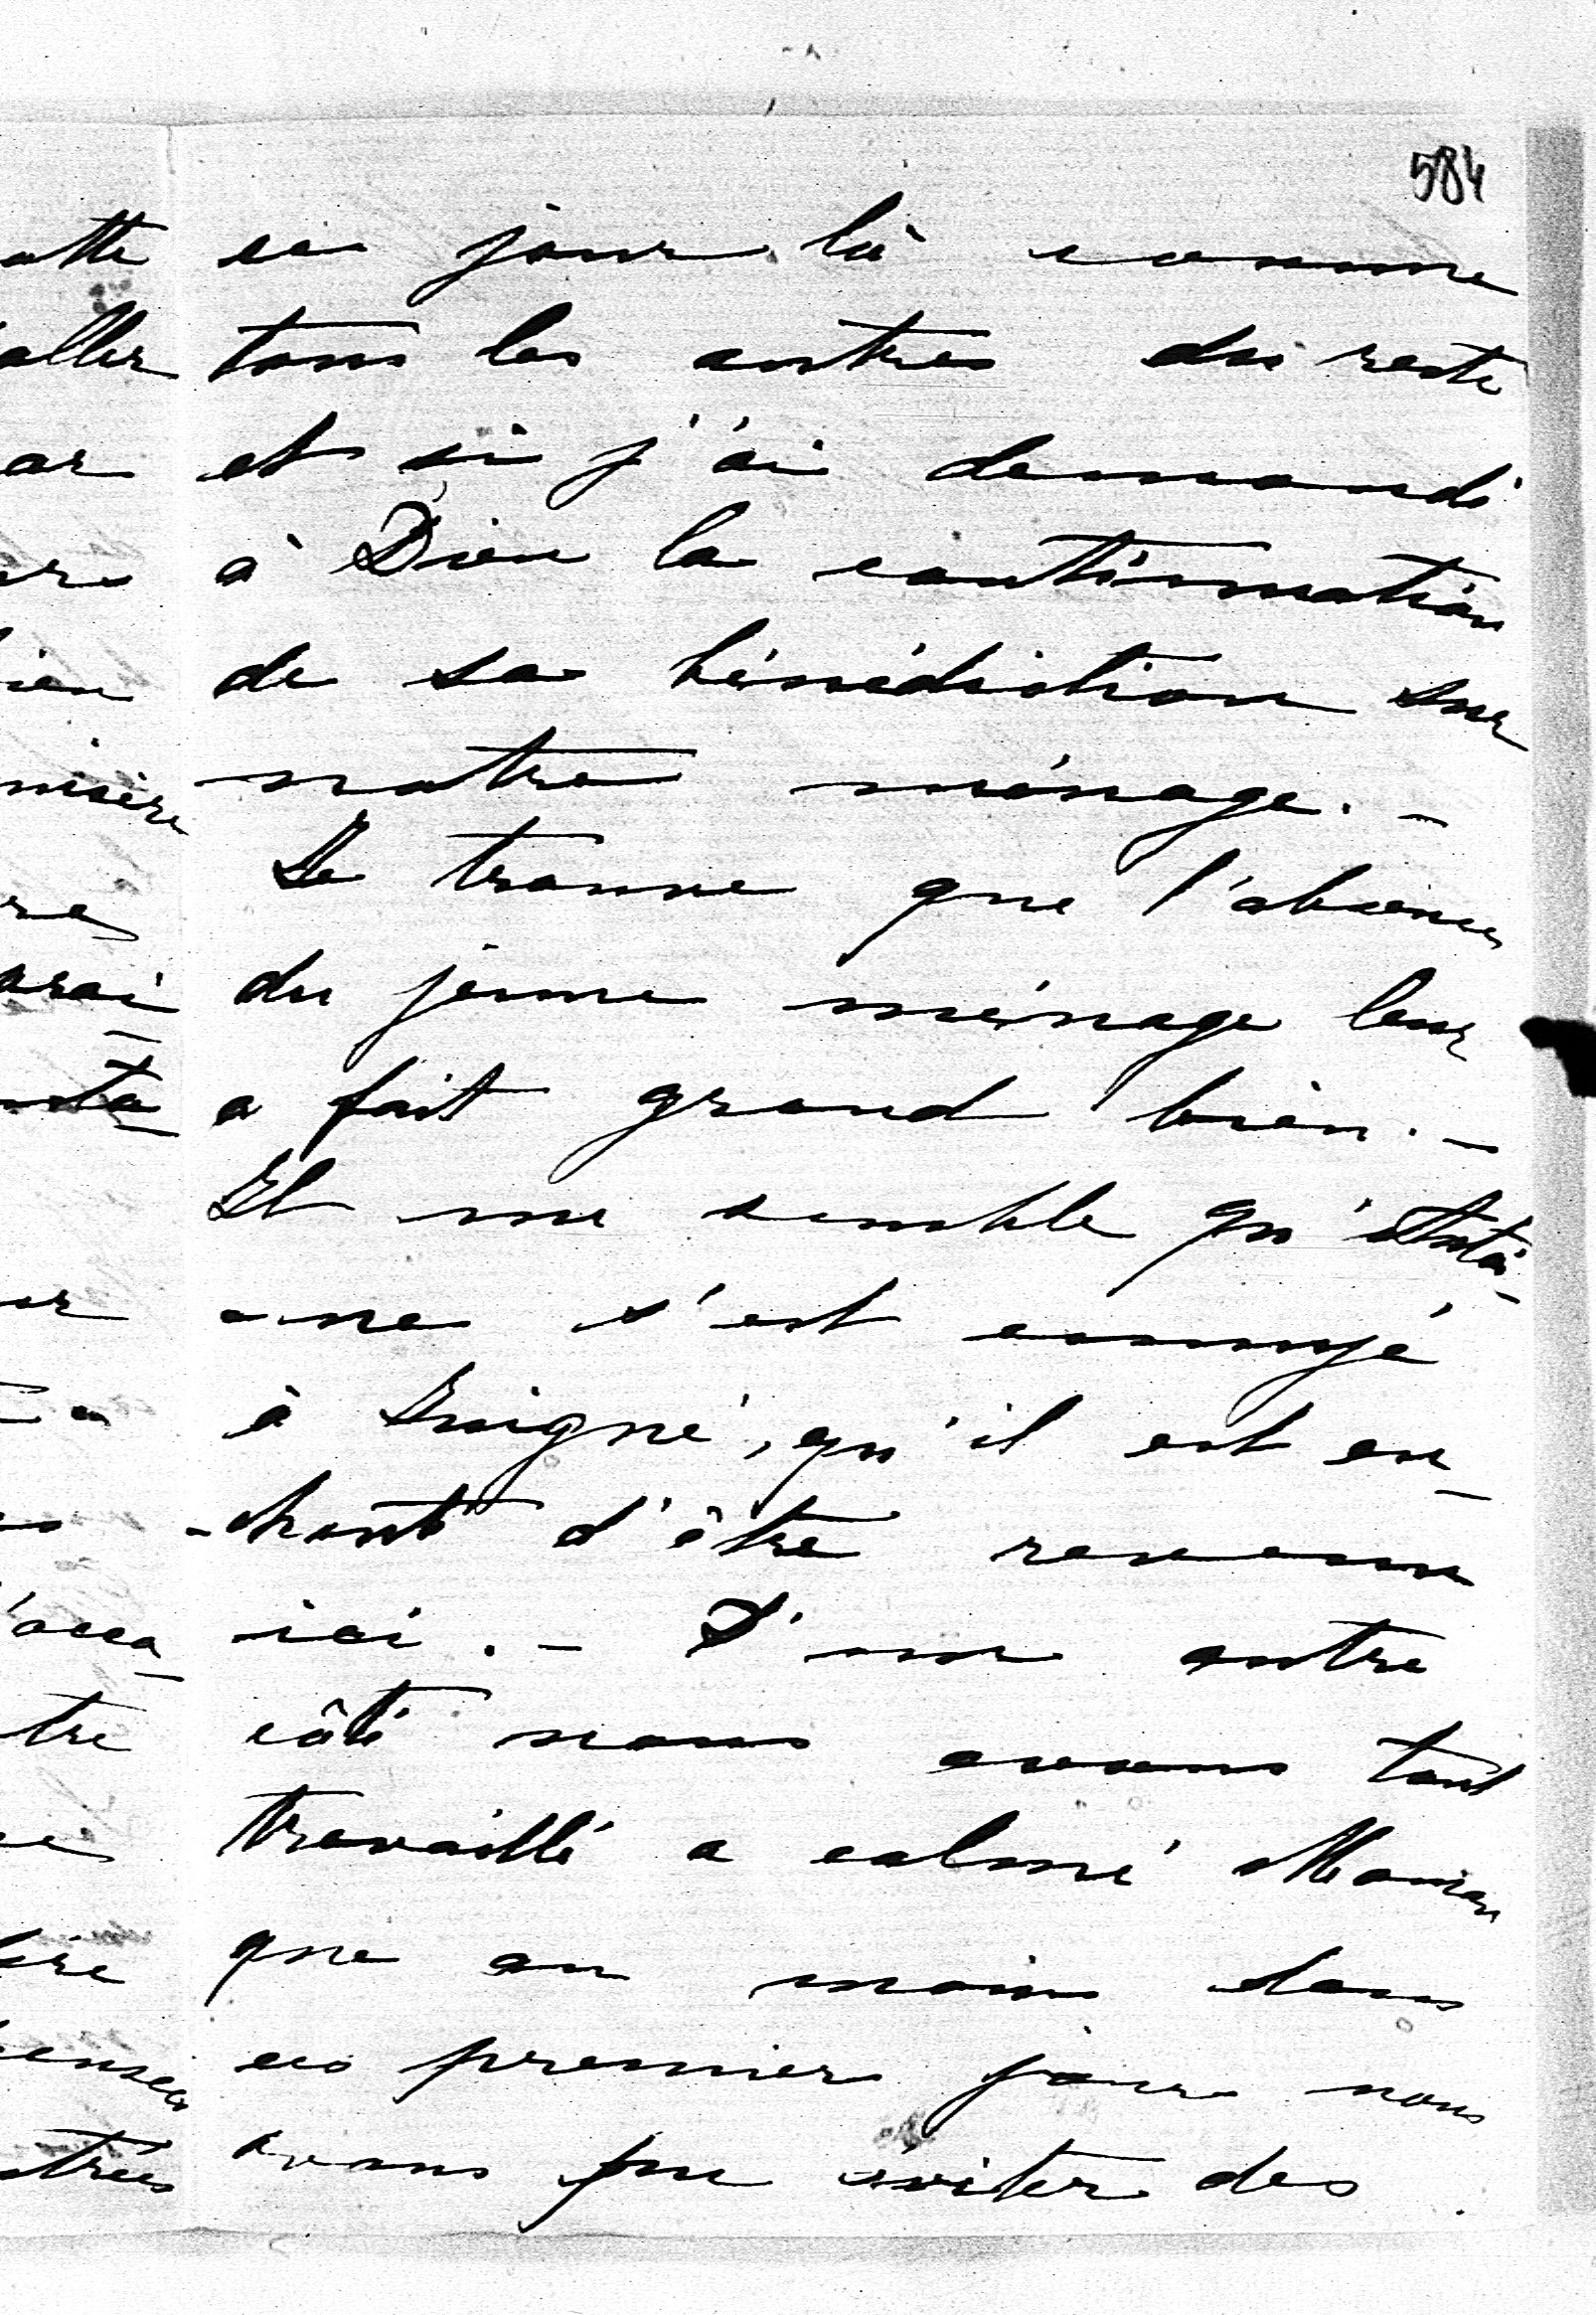 584
ce jour là comme
tous les autres du reste
et si j'ai demandé
à Dieu la continuation
de sa bénédiction sur
notre ménage. –
Je trouve que l'absence
du jeune ménage leur
a fait grand bien. –
Il me semble qu'Antoi-
-ne s'est ennuyé
à Guigné, qu'il est en-
-chanté d'être revenu
ici. – D'un autre
côté nous avons tant
travaillé a calmé Maman
que au moins dans
ces premier jour nous
avons pu éviter des